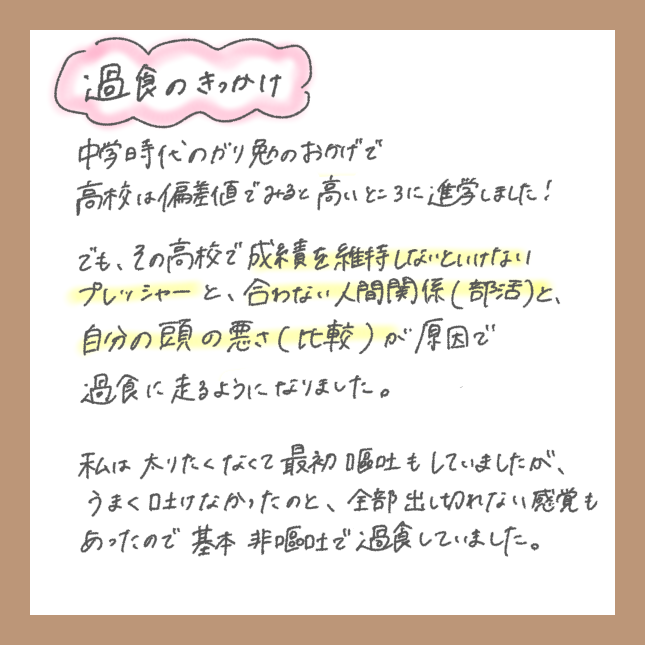 過食のきっかけ
中学時代のガリ勉のおかげで
高校は偏差値でみると高いところに進学しました!
でも、その高校で成績を維持しないといけない
プレッシャーと、合わない人間関係(部活)と、
自分の頭の悪さ(比較)が原因で
過食に走るようになりました。
私は太りたくなくて最初嘔吐もしていましたが、
うまく吐けなかったのと、全部出し切れない感覚も
あったので基本非嘔吐で過食していました。